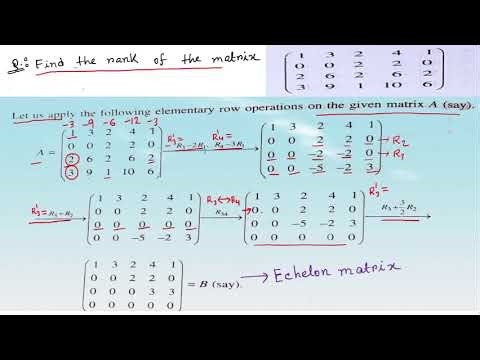 Q.: Find the rank of the matrix
1 3 2 4 1
0 0 2 2 0
2 6 2 6 2
3 9 1 10 6
Let us apply the following elementary row operations on the given matrix A (say).
-3 -9 -6 -12 -3
A = 1 3 2 4 1
0 0 2 2 0
2 6 2 6 2
3 9 1 10 6
R3' = R4' =
R3-2R1, R4-3R1
1 3 2 4 1
0 0 2 2 0 → R2
0 0 -2 -2 0 → R3
0 0 -5 -2 3
R3' = R3+R2
1 3 2 4 1
0 0 2 2 0
0 0 0 0 0
0 0 -5 -2 3
R3 ↔ R4
R34
1 3 2 4 1
0 0 2 2 0
0 0 -5 -2 3
0 0 0 0 0
R3' =
R3+5/2R2
1 3 2 4 1
0 0 2 2 0
0 0 0 3 3
0 0 0 0 0
= B (say). → Echelon matrix